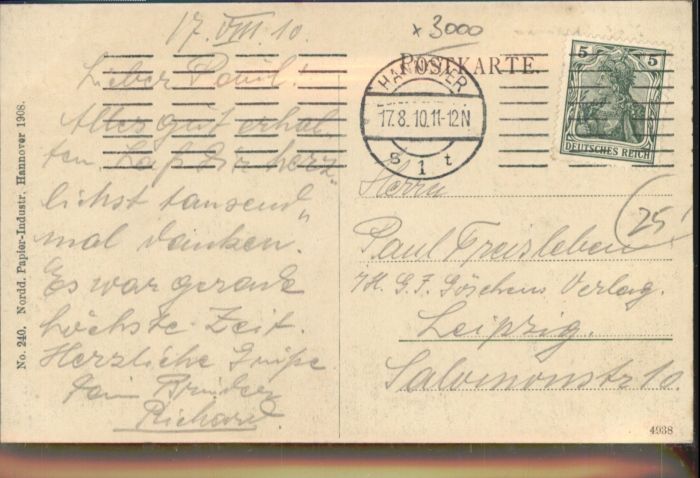 17. VIII. 10.
x 3000
POSTKARTE.
5 5
DEUTSCHES REICH
HANNOVER
17.8.10.11-12N
S 1 t
Lieber Paul!
Alles gut erhal-
ten. Laß Dir herz-
lichst tausend
mal danken.
Es war gerade
höchste Zeit.
Herzliche Grüße
Dein Bruder
Richard.
Herrn
Paul Freisleben
25
G. J. Göschens Verlag.
Leipzig.
Salomonstr 10.
No. 240. Nordd. Papier-Industr. Hannover 1908.
4938